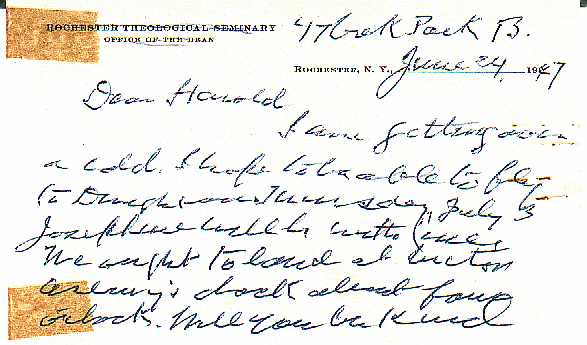 ROCHESTER THEOLOGICAL SEMINARY
OFFICE OF THE DEAN
47 Park B.
ROCHESTER, N. Y., June 24, 1947
Dear Harold
I am getting over
a cold. I hope to be able to fly
to on Thursday, July 3
Josephine will be with me
We ought to land at
dock about four
o'clock. Will you be kind